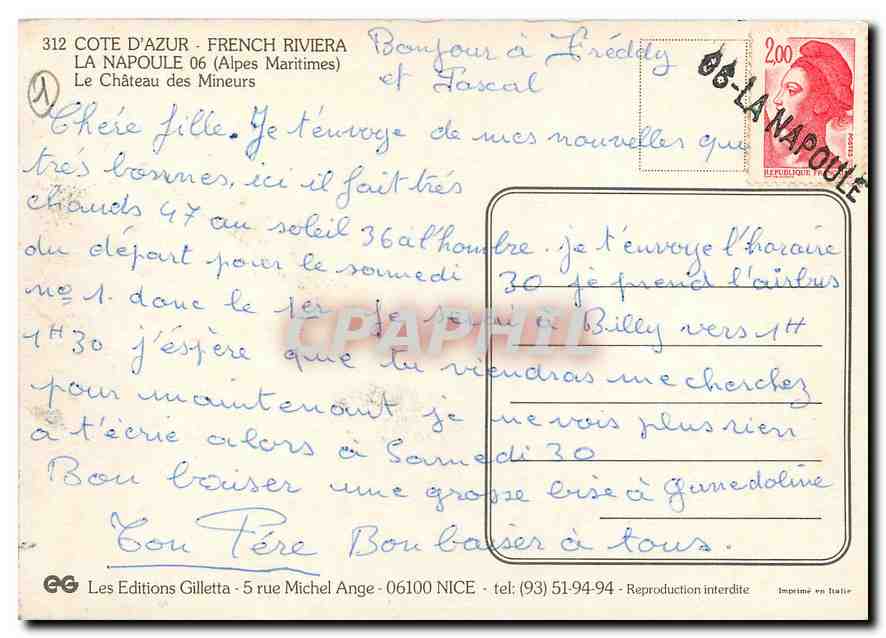 312 COTE D'AZUR - FRENCH RIVIERA
LA NAPOULE 06 (Alpes Maritimes)
Le Château des Mineurs
Bonjour à Fréddy
et Pascal
2,00
POSTES
REPUBLIQUE
06-LA NAPOULE
1
Chére fille. Je t'envoye de mes nouvelles qui
trés bonnes, ici il fait trés
chauds 47 au soleil 36 à l'hombre. je t'envoye l'horaire
du départ pour le samedi 30 je prend l'airbus
no 1. donc le 1er je serai à Billy vers 1H
1H30 j'espère que tu viendras me cherchez
pour maintenant je ne vois plus rien
a t'écrie alors à Samedi 30
Bon baiser une grosse bise à Gunedoline
Ton Pére Bon baiser à tous.
CPAPHIL
EG Les Editions Gilletta - 5 rue Michel Ange - 06100 NICE - tel: (93) 51-94-94 - Reproduction interdite
Imprimé en Italie